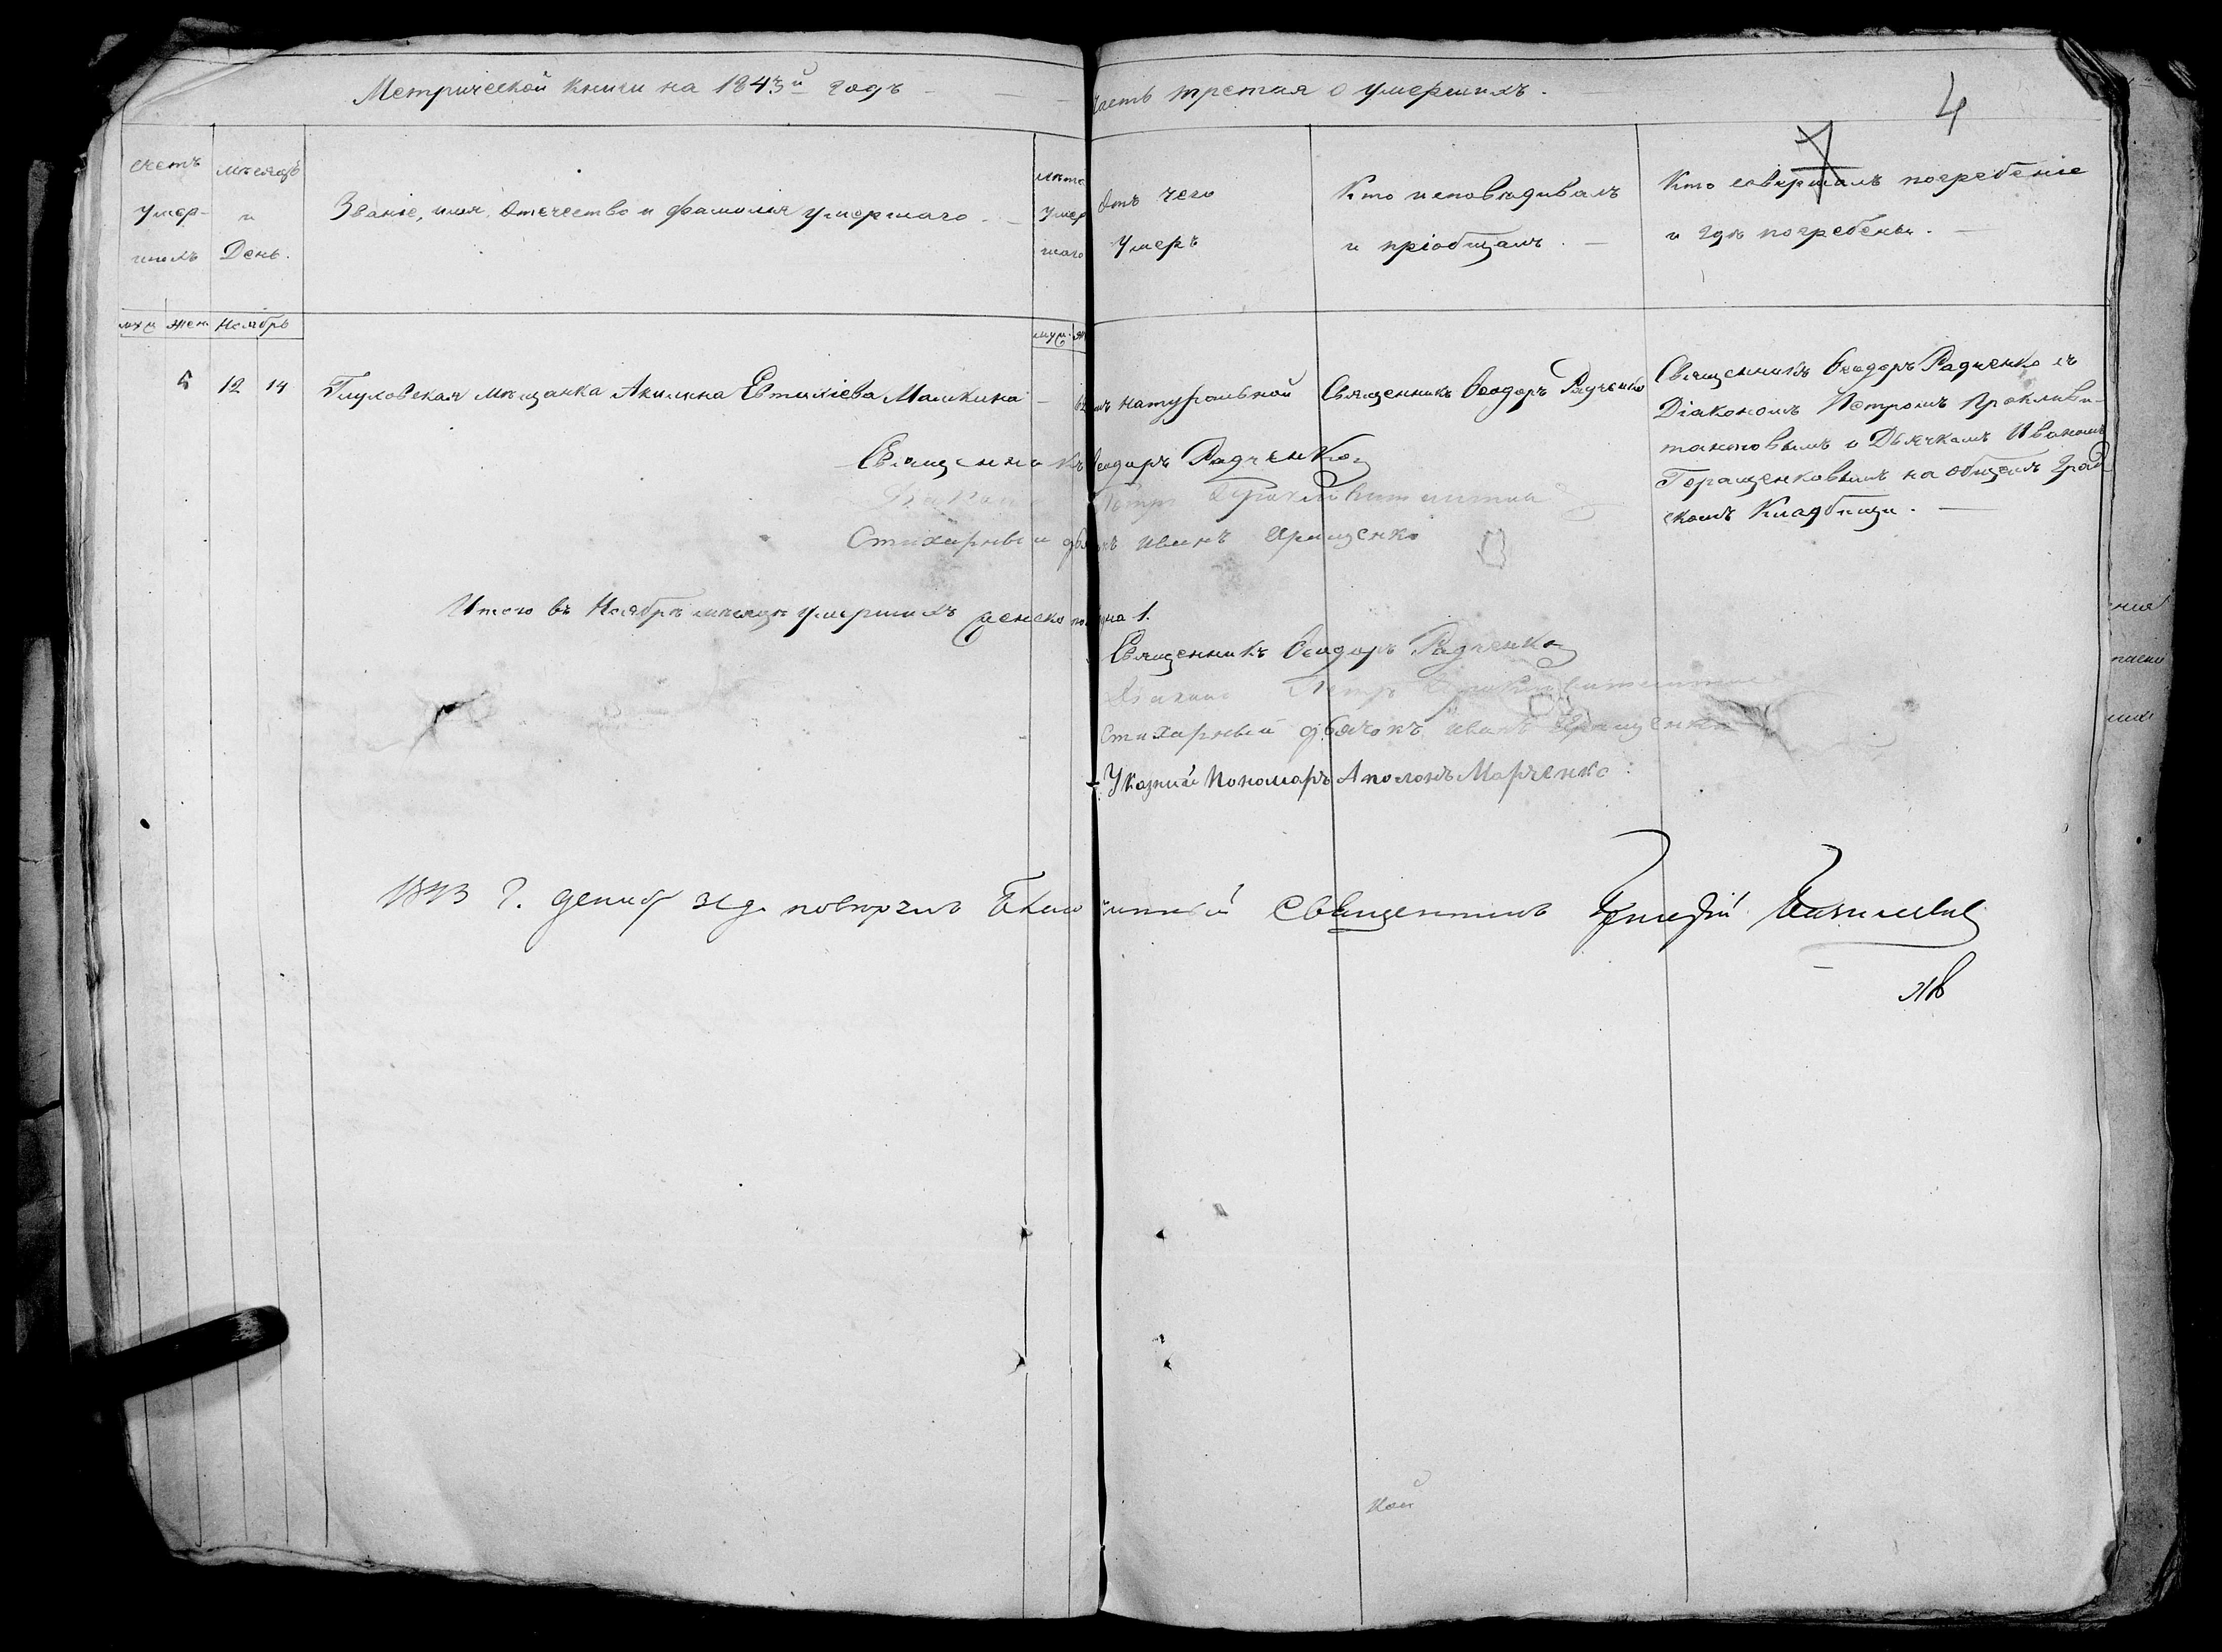 Метрической книги на 1843й годъ часть третия о умершихъ.
4
счетъ умер- шихъ
мѣсяцъ и День.
Званіе, имя, отечество и фамилія умершаго.
лѣта умер шаго
Отъ чего умеръ
Кто исповѣдивалъ и пріобщалъ.
Кто совершалъ погребеніе и гдѣ погребены.
муж жен Ноябрь
муж
5 12 14 Глуховская мѣщанка Акилина Евтихіева Машкина натуральной Священникъ Ѳеодоръ Радченко
Священникъ Ѳеодоръ Радченко съ
Діакономъ Петромъ
и Дьячкомъ Иваномъ
Геращенковымъ на общемъ град
скомъ Кладбищи.
Священникъ Ѳеодоръ Радченко
Діаконъ Петръ
Стихарный дьячокъ Иванъ Иращенко
Итого въ Ноябрѣ мѣсяцѣ умершихъ женска пола одна 1.
Священникъ Ѳеодоръ Радченко
Діаконъ Петръ
Стихарный дьячокъ Иванъ Иращенко
Указний Пономаръ Аполонъ Марченко
1843 г. декаб повѣрялъ Благочинный Священникъ